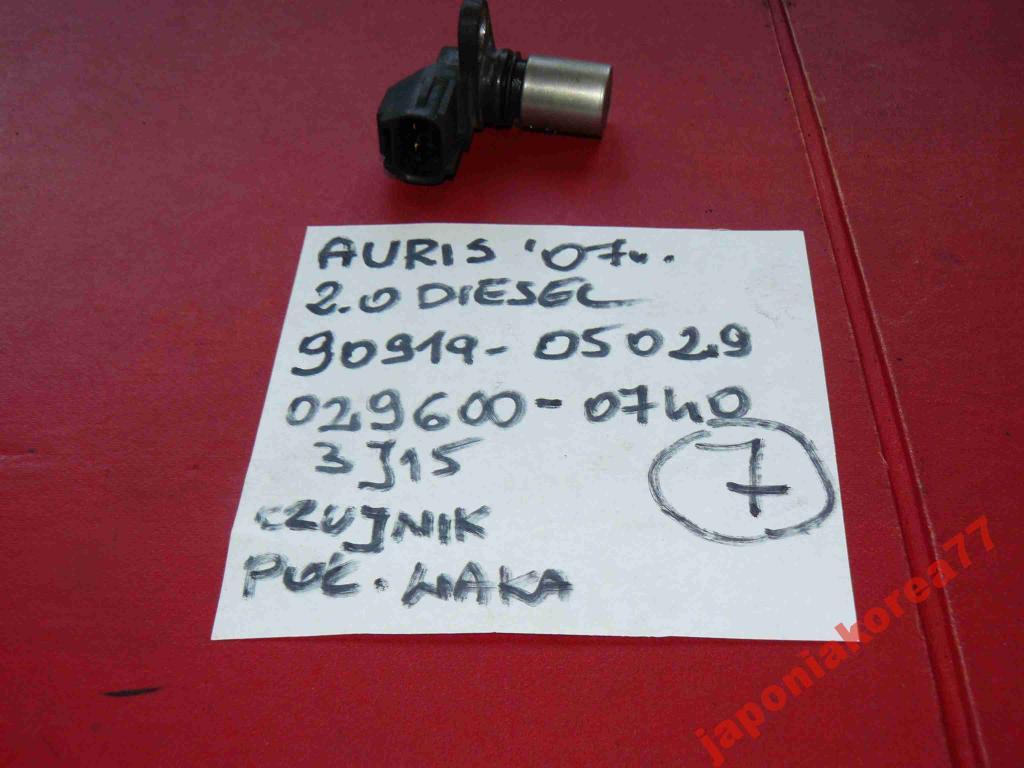 AURIS '07r.
2.0 DIESEL
90919-05029
029600-0740
3J15
7
CZUJNIK
POŁ. WAŁKA
japoniakorea77